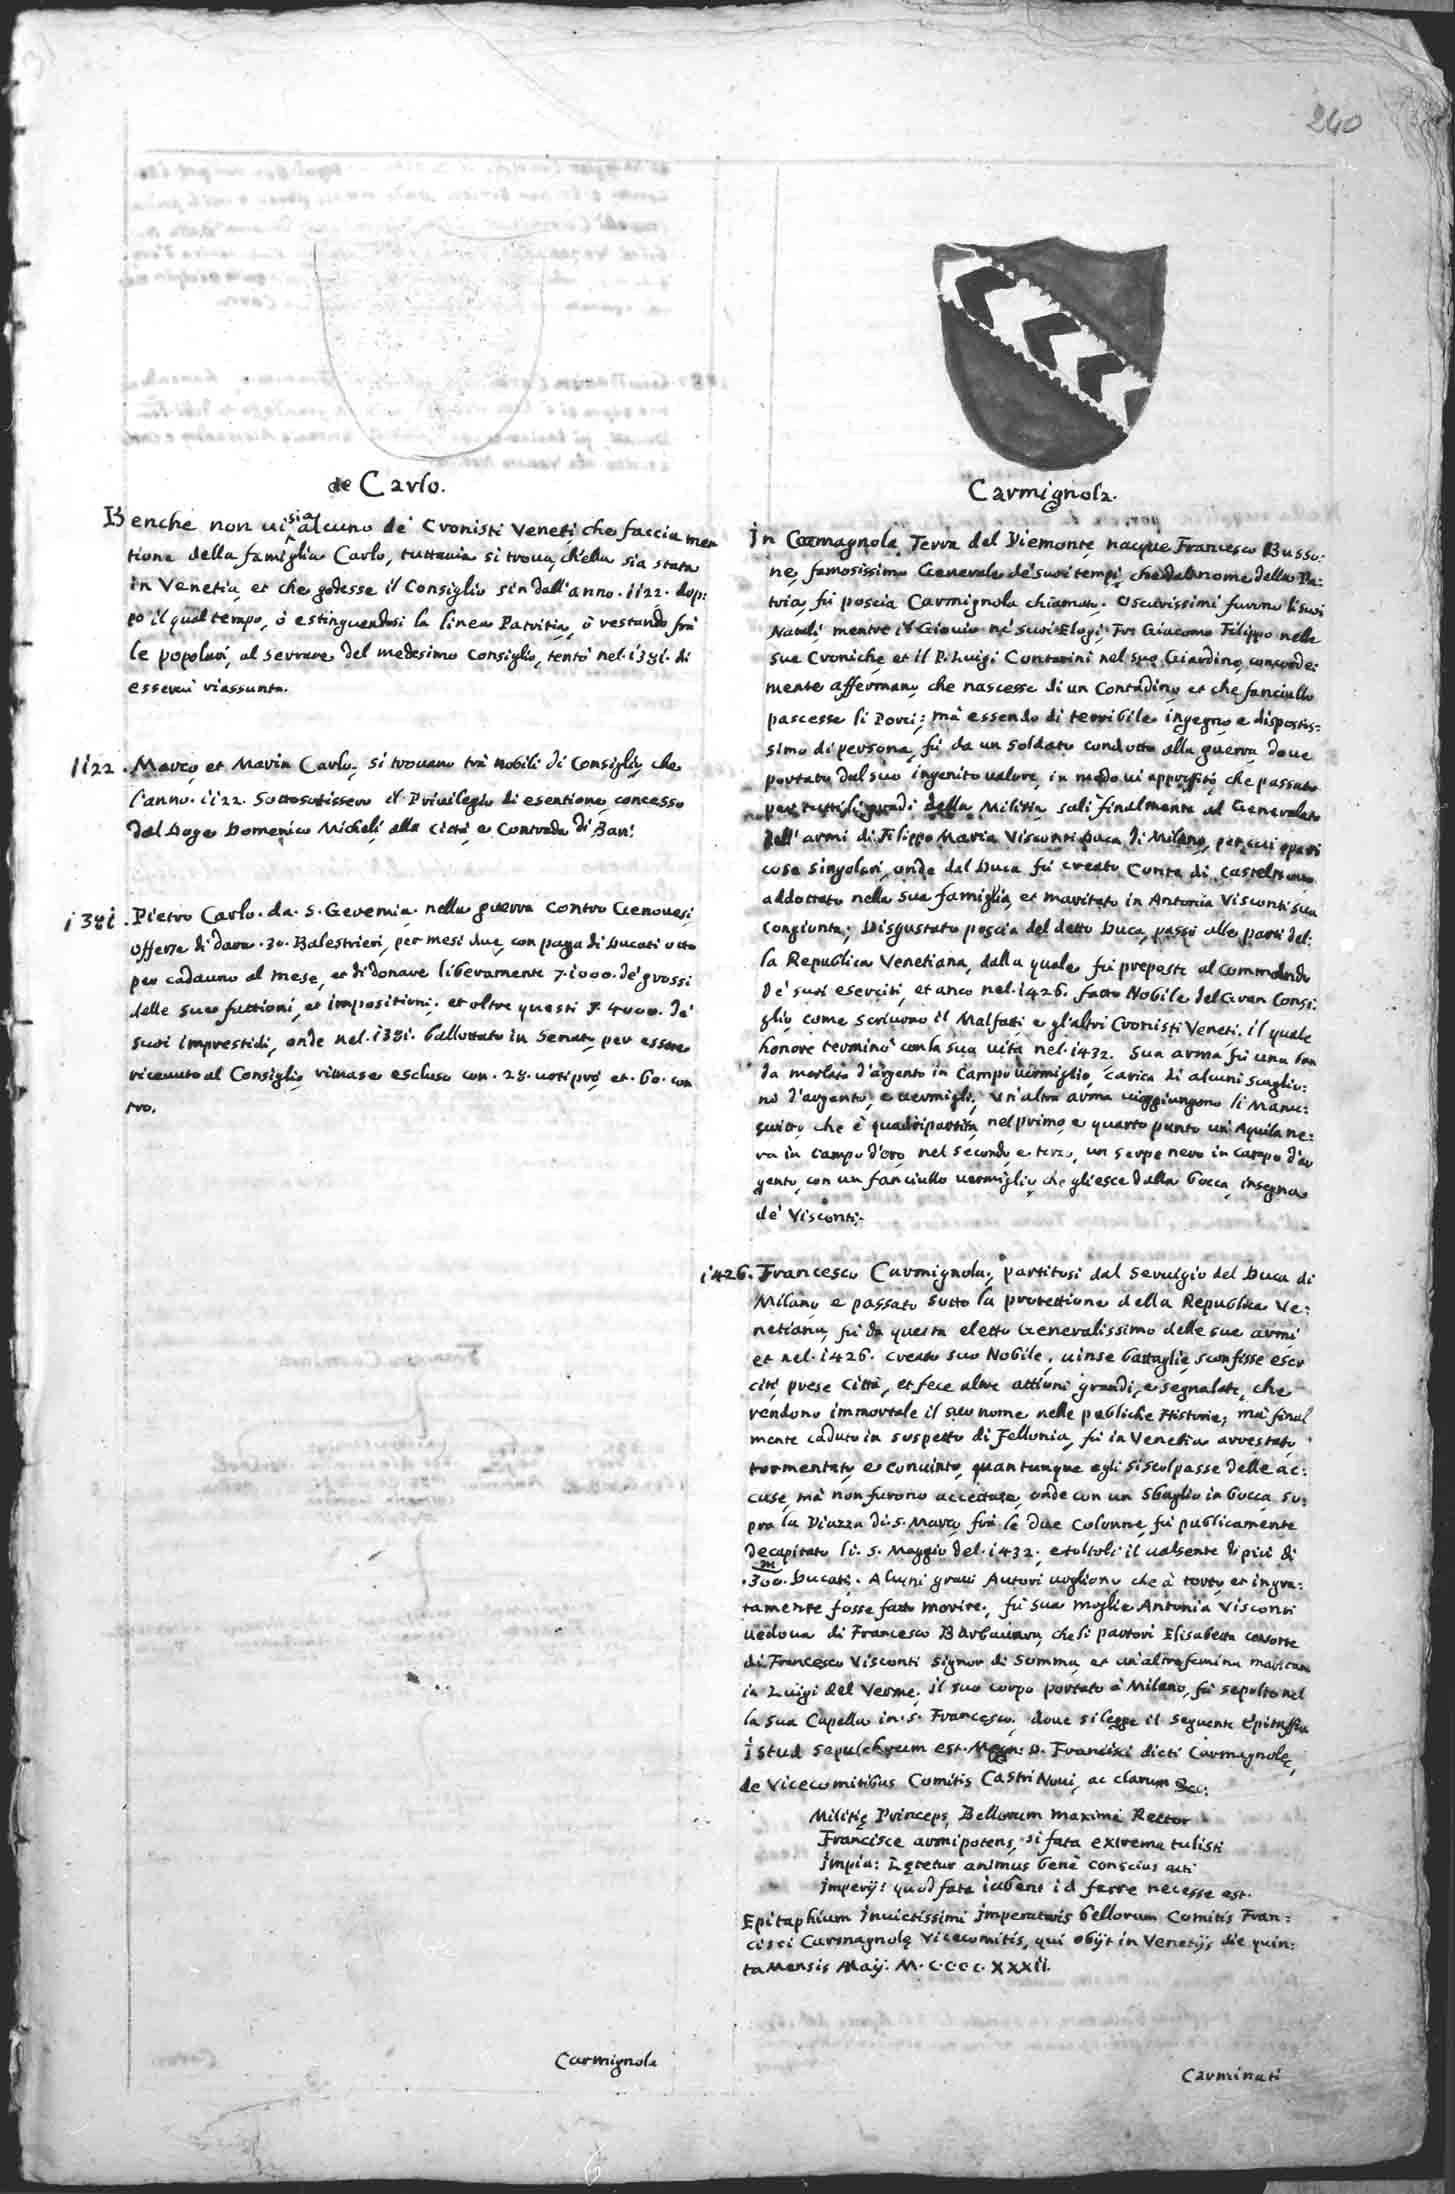 240
de Carlo.
Benche non ui sia alcuno de' Cronisti Veneti che faccia men
tione della famiglia Carlo, tuttauia si troua, ch'ella sia stata
in Venetia, et che godesse il Consiglio sin dall'anno. 1122. dop:
po il qual tempo, ò estinguendosi la linea Patritia, ò restando frà
le popolari, al serrare del medesimo Consiglio, tentò nel. 1381. di
esserui riassunta.
1122. Marco, et Marin Carlo, si trouano trà nobili di Consiglio, che
l'anno. 1122. Sottoscrissero il Priuilegio di esentione, concesso
dal Doge Domenico Micheli, alla Città, e Contrada di Bari.
1381. Pietro Carlo. da. S. Geremia. nella guerra contro Genouesi,
offerse di dare. 30. Balestrieri, per mesi due, con paga di Ducati otto
per cadauno al mese, et di donare liberamente 7. 1000. de' grossi
delle sue fattioni, et impositioni; et oltre questi 7. 4000. de'
suoi imprestidi, onde nel. 1381. ballottato in Senato, per essere
riceuuto al Consiglio, rimase escluso con. 28. uoti prò, et. 60. con
tro.
Carmignola
Carmignola.
In Carmagnola Terra del Piemonte, nacque Francesco Busso:
ne, famosissimo Generale de' suoi tempi, che dal nome della Pa:
tria, fù poscia Carmignola chiamato. Oscurissimi furono li suoi
Natali mentre il Giouio ne' suoi Elogi, Frà Giacomo Filippo nelle
sue Croniche, et il P. Luigi Contarini nel suo Giardino, concorde:
mente affermano, che nascesse di un Contadino, et che fanciullo
pascesse li Porci; mà essendo di terribile ingegno e dispostis:
simo di persona, fù da un soldato condotto alla guerra, doue
portato dal suo ingenito ualore, in modo ui approfittò, che passato
per tutti li gradi della Militia, salì finalmente al Generalato
dell'armi di Filippo Maria Visconti Duca di Milano, per cui operò
cose singolari, onde dal Duca fù creato Conte di Castelnouo
addottato nella sua famiglia, et maritato in Antonia Visconti sua
Congiunta; Disgustato poscia del detto Duca, passò alle parti del:
la Republica Venetiana, dalla quale fù preposto al Commando
de' suoi eserciti, et anco nel. 1426. fatto Nobile del Gran Consi:
glio, come scriuono il Malfatti, e gl'altri Cronisti Veneti. il quale
honore terminò con la sua uita nel. 1432. Sua arma fù una ban
da merlata d'argento in Campo uermiglio, carica di alcuni scaglio:
ni d'argento, e uermigli. Un'altra arma ui aggiungono li Manu:
scritti, che è quadripartita, nel primo, e quarto punto un'Aquila ne:
ra in campo d'oro, nel secondo, e terzo, un serpe nero in campo d'ar
gento, con un fanciullo uermiglio, che gli esce dalla bocca, insegna
de' Visconti.
1426. Francesco Carmignola, partitosi dal seruigio del Duca di
Milano, e passato sotto la protettione della Republica Ve:
netiana, fù da questa eletto Generalissimo delle sue armi
et nel. 1426. creato suo Nobile; uinse battaglie, sconfisse eser
citi, prese Città, et fece altre attioni grandi, e segnalate, che
rendono immortale il suo nome nelle publiche Historie; mà final
mente caduto in suspetto di Fellonia, fù in Venetia arrestato
tormentato, e conuinto, quantunque egli si scolpasse delle ac:
cuse, mà non furono accettate, onde con un Sbaglio in bocca, so:
pra la Piazza di. S. Marco, frà le due Colonne, fù publicamente
decapitato li. 5. Maggio del. 1432. e toltoli il ualsente di più di
m
.300. Ducati. Alcuni graui Autori uogliono, che à torto, et ingra:
tamente fosse fatto morire; fù sua moglie Antonia Visconti
uedoua di Francesco Barbauara, che li partorì Elisabetta consorte
di Francesco Visconti Signor di Somma, et un'altra femina maritata
in Luigi del Verme; il suo corpo portato à Milano, fù sepolto nel
la sua Capella in. S. Francesco, doue si legge il seguente Epitaffio
Istud sepulchrum est. Magn: D. Francisci dicti Carmagnolę,
de Vicecomitibus Comitis Castri Noui, ac clarum &c:
Militię Princeps, Bellorum maxime Rector
Francisce armipotens, si fata extrema tulisti
Impia: Lętetur animus benè conscius acti
Imperij: quod fata iubent id ferre necesse est.
Epitaphium inuictissimi Imperatoris bellorum Comitis Fran:
cisci Carmagnolę Vicecomitis, qui obijt in Venetijs die quin:
ta Mensis Maij. M.CCCC.XXXII.
Carminati